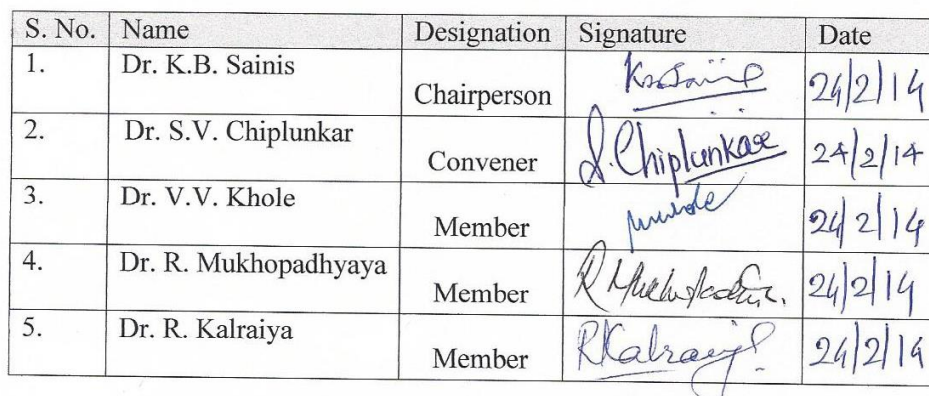 S. No. Name Designation Signature Date
1. Dr. K.B. Sainis Chairperson 24/2/14
2. Dr. S.V. Chiplunkar Convener S. Chiplunkar 24/2/14
3. Dr. V.V. Khole Member 24/2/14
4. Dr. R. Mukhopadhyaya Member 24/2/14
5. Dr. R. Kalraiya Member RKalraiya 24/2/14